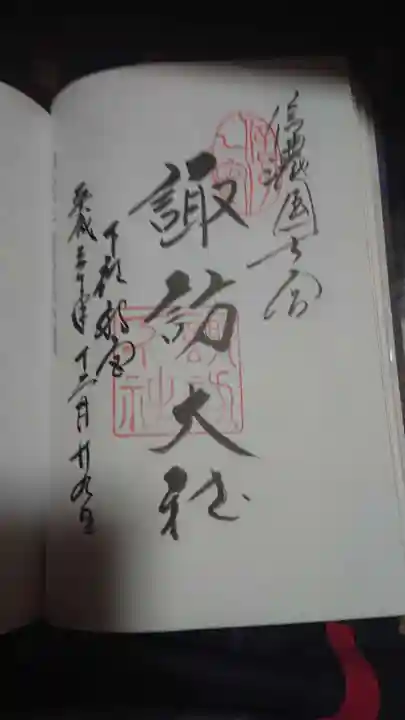 信濃國一宮
諏訪大社
下社秋宮
平成三十年十二月廿九日